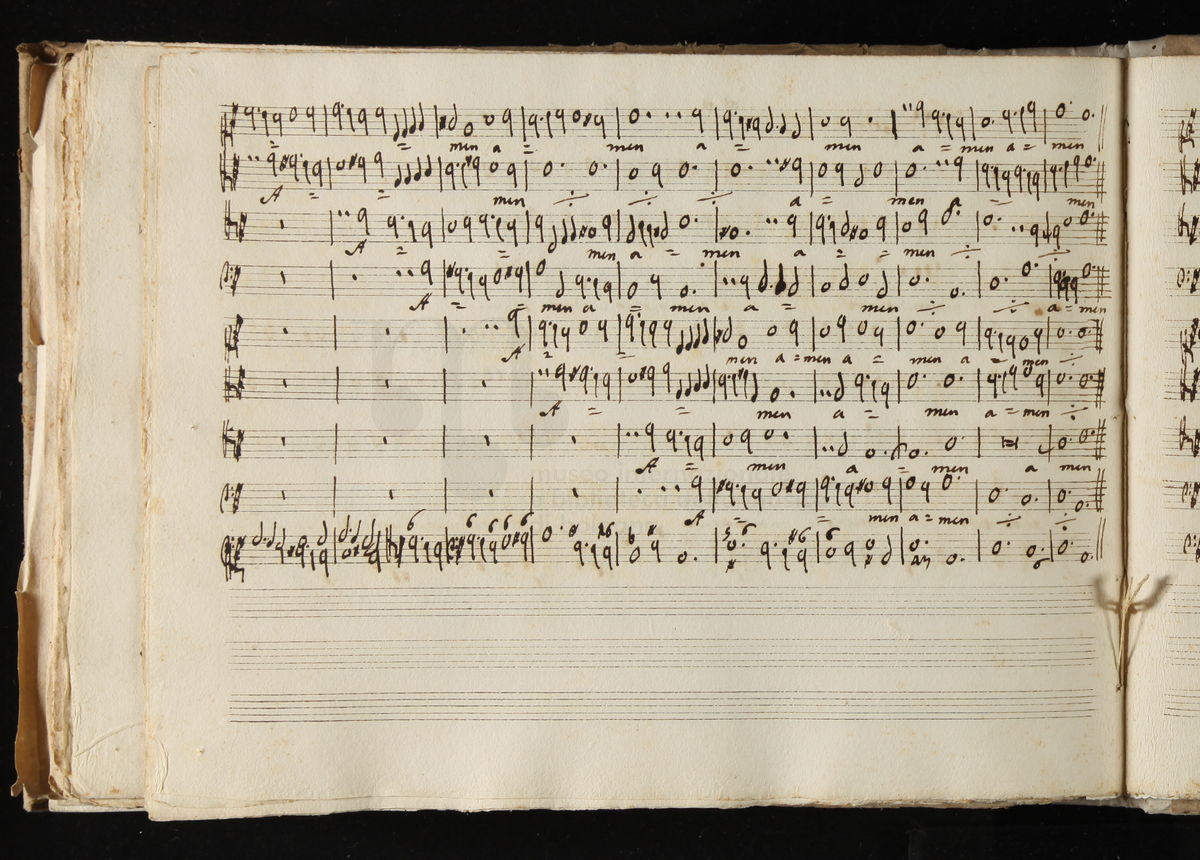 = = men a = men a = men a = men a = men
A = = men ÷ ÷ ÷ a = men a = men
A = = men a = men a = = men ÷ ÷
A = = men a = men a = men ÷ ÷ a = men
A = = men a = men a = men a = men ÷
A = = men a = men a = men ÷
A = men a = men a men
A = = men a = men ÷ ÷
6 6 6 6 6 6 6 5 6 6 6
museo internazionale